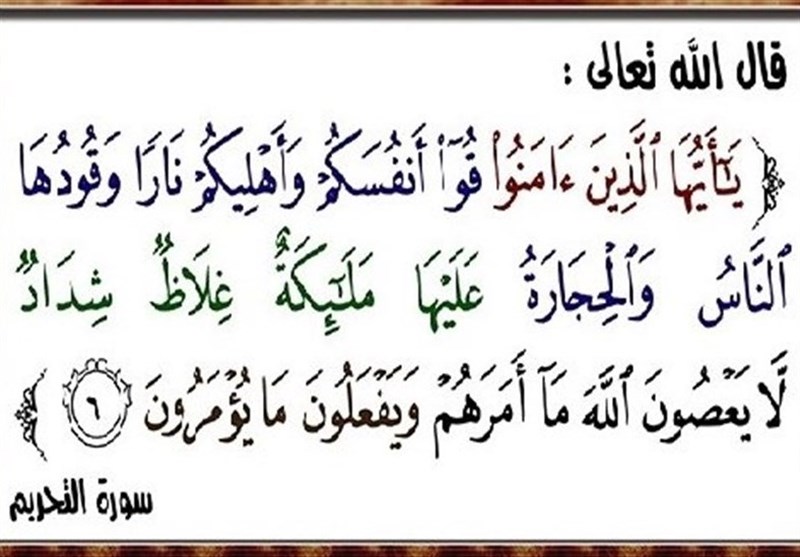 قال الله تعالى :
﴿ يَـٰٓأَيُّهَا ٱلَّذِينَ ءَامَنُوا۟ قُوٓا۟ أَنفُسَكُمْ وَأَهْلِيكُمْ نَارًا وَقُودُهَا
ٱلنَّاسُ وَٱلْحِجَارَةُ عَلَيْهَا مَلَـٰٓئِكَةٌ غِلَاظٌ شِدَادٌ
لَّا يَعْصُونَ ٱللَّهَ مَآ أَمَرَهُمْ وَيَفْعَلُونَ مَا يُؤْمَرُونَ ٦ ﴾
سورة التحريم